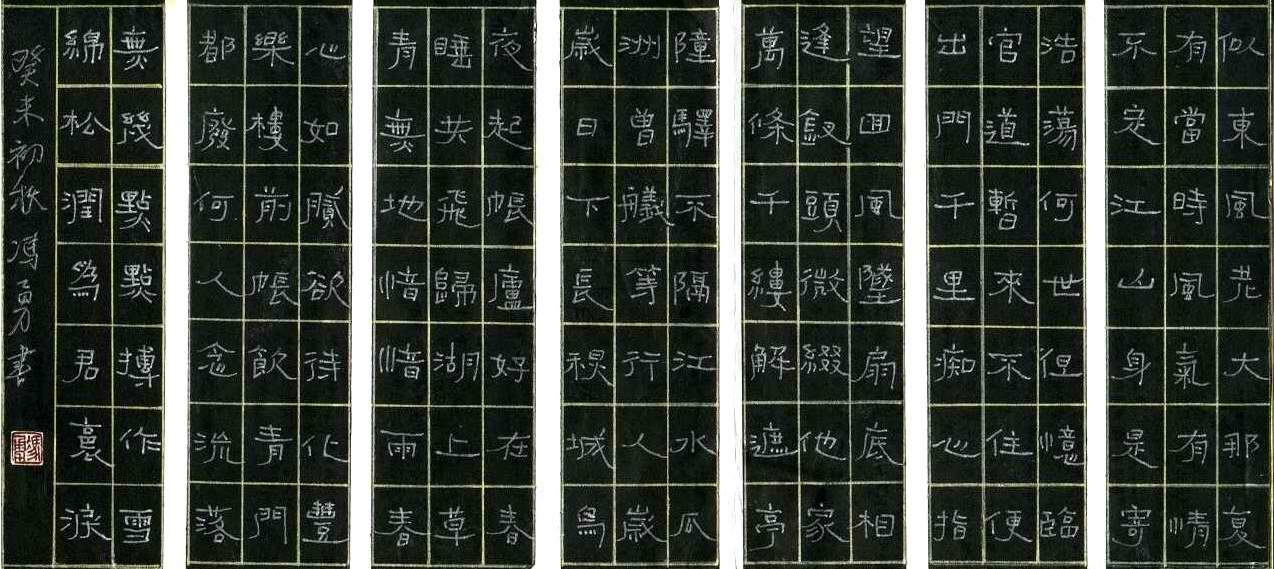 似東風老大那复
有當時風氣有情
不定江山身是寄
浩蕩何世但憶臨
官道暫來不住便
出門千里痴心指
望囬風墜扇底相
逢釵頭微綴他家
萬條千縷解遮亭
障驛不隔江水瓜
洲曾艤等行人歲
歲日下長秋城烏
夜起帳廬好在春
睡共飛歸湖上草
青無地愔愔雨春
心如膩欲待化豐
樂樓前帳飲青門
都廢何人念流落
無幾點點摶作雪
綿松潤為君裛淚
癸未初秋馮勇書